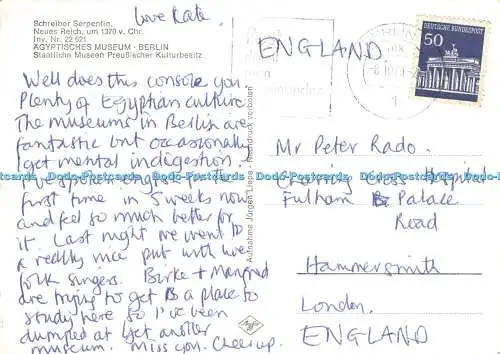 Schreiber Serpentin,
Neues Reich, um 1370 v. Chr.
Inv. Nr. 22 621
ÄGYPTISCHES MUSEUM · BERLIN
Staatliche Museen Preußischer Kulturbesitz
Love Kate.
Well does this console you
Plenty of Egyptian culture
The museums in Berlin are
fantastic but occasionally
I get mental indigestion.
I've spoken English for the
first time in 5 weeks now
and feel so much better for
it. Last night we went to
a really nice pub with live
folk singers. Birke + Manfred
are trying to get a place to
study here so I've been
dumped at yet another
museum. Miss you. Cheerup.
Aufnahme Jürgen Liepe · Nachdruck verboten
Agfa
DEUTSCHE BUNDESPOST
50
ENGLAND
Mr Peter Rado.
Charing Cross Hospital
Fulham Palace
Road
Hammersmith
London.
ENGLAND
Dodo-Postcards Dodo-Postcards Dodo-Postcards Dodo-Postcards